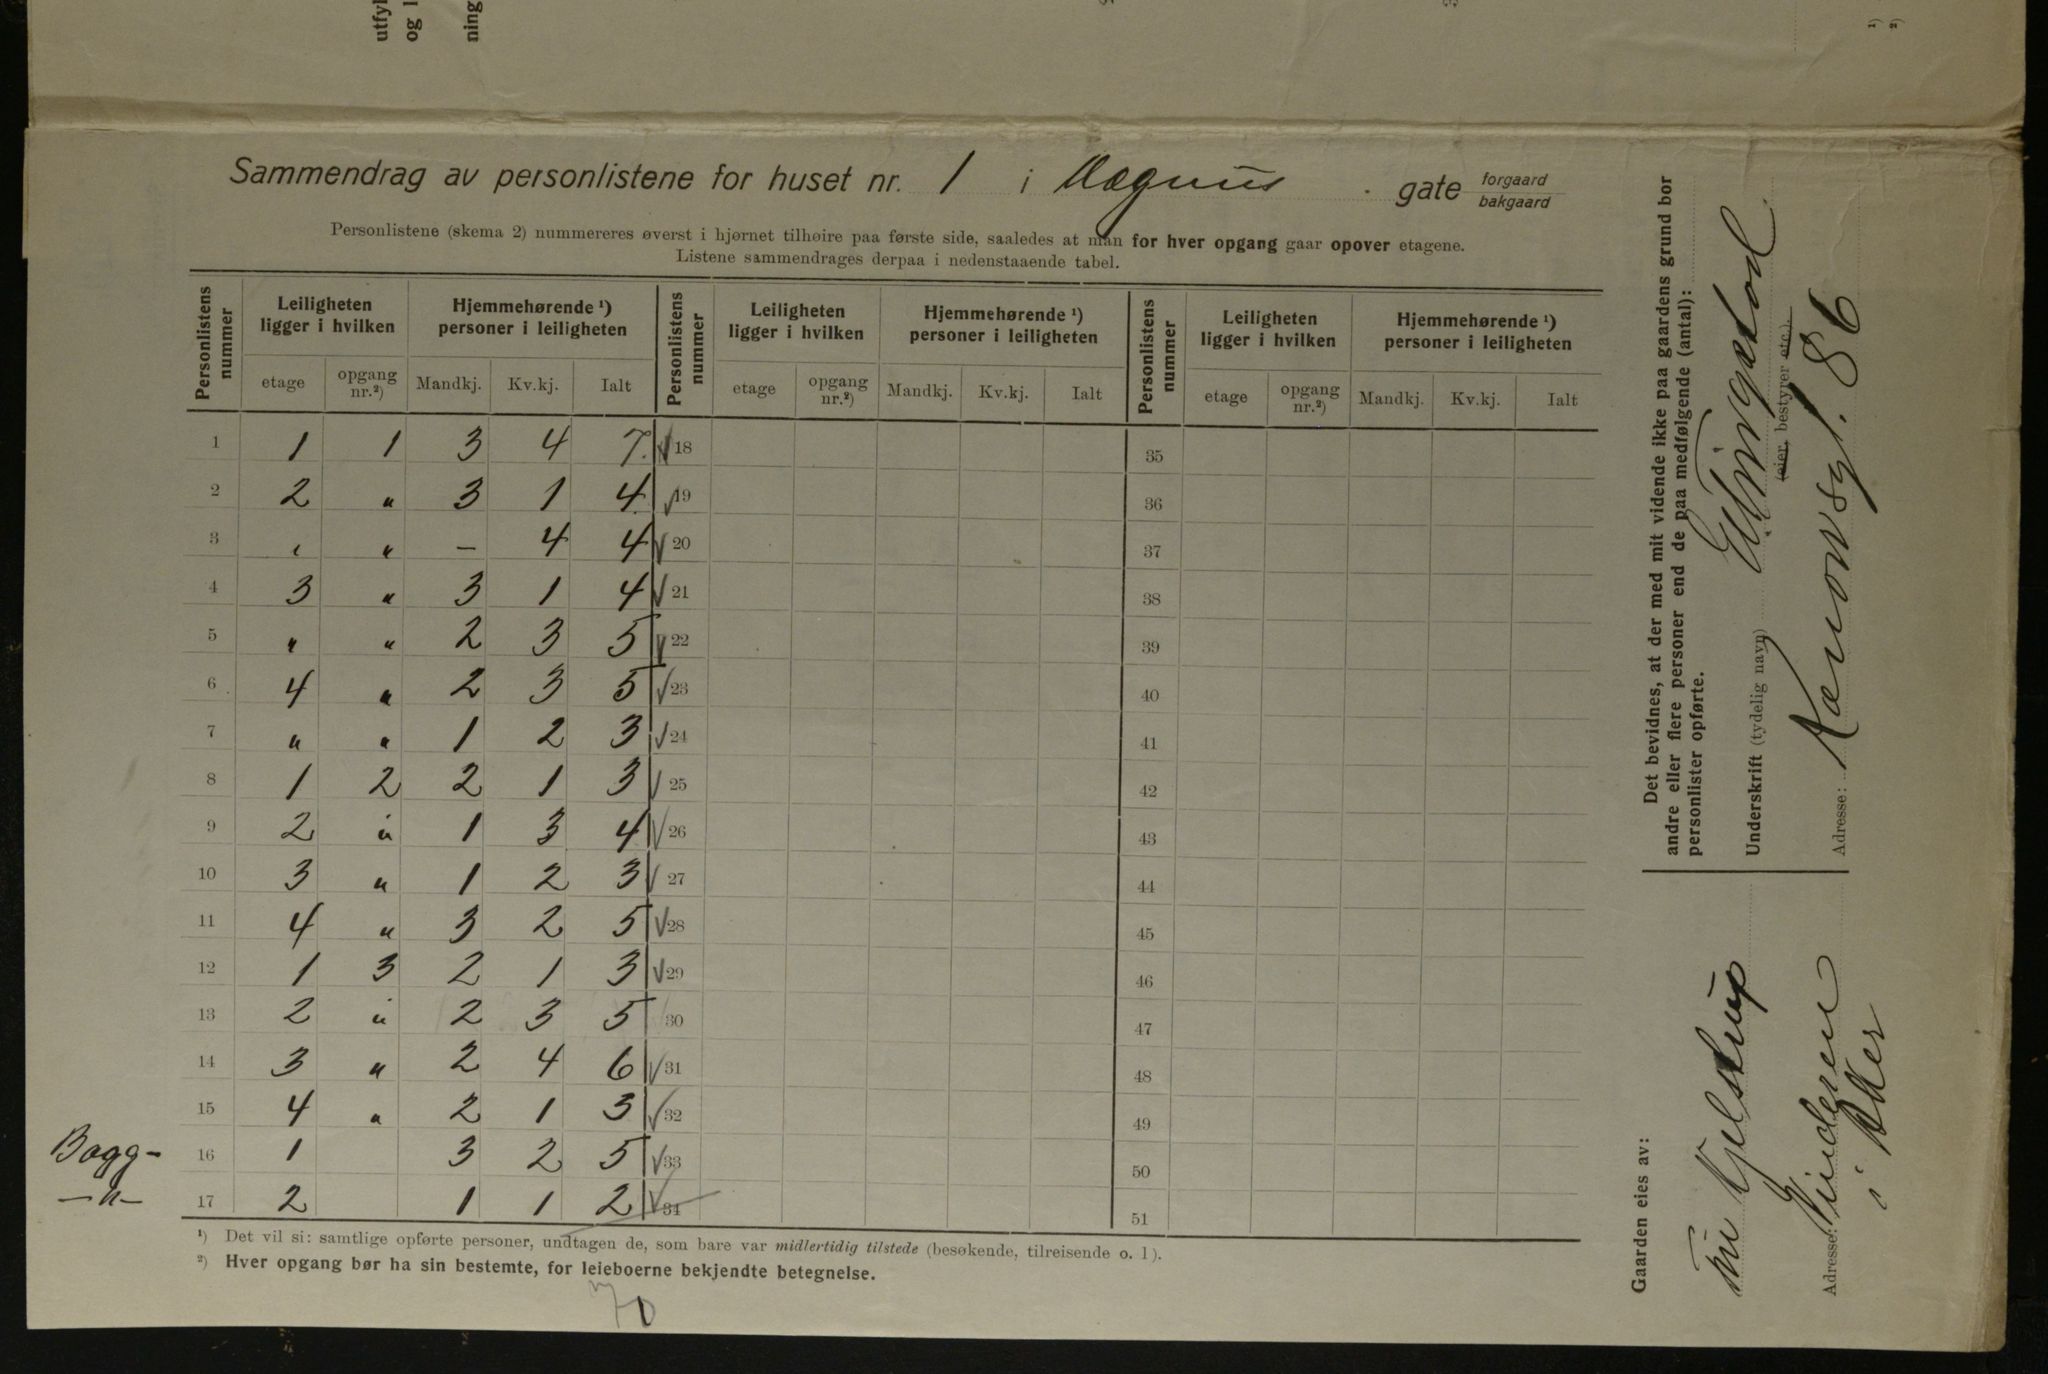 utfyl
og l
ning
1)
2)
Sammendrag av personlistene for huset nr. 1 i Magnus gate forgaard
bakgaard
Personlistene (skema 2) nummereres øverst i hjørnet tilhøire paa første side, saaledes at man for hver opgang gaar opover etagene.
Listene sammendrages derpaa i nedenstaaende tabel.
Personlistens nummer | Leiligheten ligger i hvilken | Hjemmehørende ¹) personer i leiligheten | Personlistens nummer | Leiligheten ligger i hvilken | Hjemmehørende ¹) personer i leiligheten | Personlistens nummer | Leiligheten ligger i hvilken | Hjemmehørende ¹) personer i leiligheten
etage | opgang nr.²) | Mandkj. | Kv.kj. | Ialt | etage | opgang nr.²) | Mandkj. | Kv.kj. | Ialt | etage | opgang nr.²) | Mandkj. | Kv.kj. | Ialt
1 1 1 3 4 7. √ 18 35
2 2 " 3 1 4 √ 19 36
3 " " – 4 4 √ 20 37
4 3 " 3 1 4 √ 21 38
5 " " 2 3 5 √ 22 39
6 4 " 2 3 5 √ 23 40
7 " " 1 2 3 √ 24 41
8 1 2 2 1 3 √ 25 42
9 2 " 1 3 4 √ 26 43
10 3 " 1 2 3 √ 27 44
11 4 " 3 2 5 √ 28 45
12 1 3 2 1 3 √ 29 46
13 2 " 2 3 5 30 47
14 3 " 2 4 6 √ 31 48
15 4 " 2 1 3 √ 32 49
Bagg- 16 1 3 2 5 √ 33 50
—"— 17 2 1 1 2 √ 34 51
¹) Det vil si: samtlige opførte personer, undtagen de, som bare var midlertidig tilstede (besøkende, tilreisende o. l).
²) Hver opgang bør ha sin bestemte, for leieboerne bekjendte betegnelse.
Det bevidnes, at der med mit vidende ikke paa gaardens grund bor
andre eller flere personer end de paa medfølgende (antal):
personlister opførte.
Underskrift (tydelig navn)
(eier, bestyrer etc.).
Adresse: 86
Gaarden eies av:
Kjelstrup
Adresse: Vinderen
i Aker